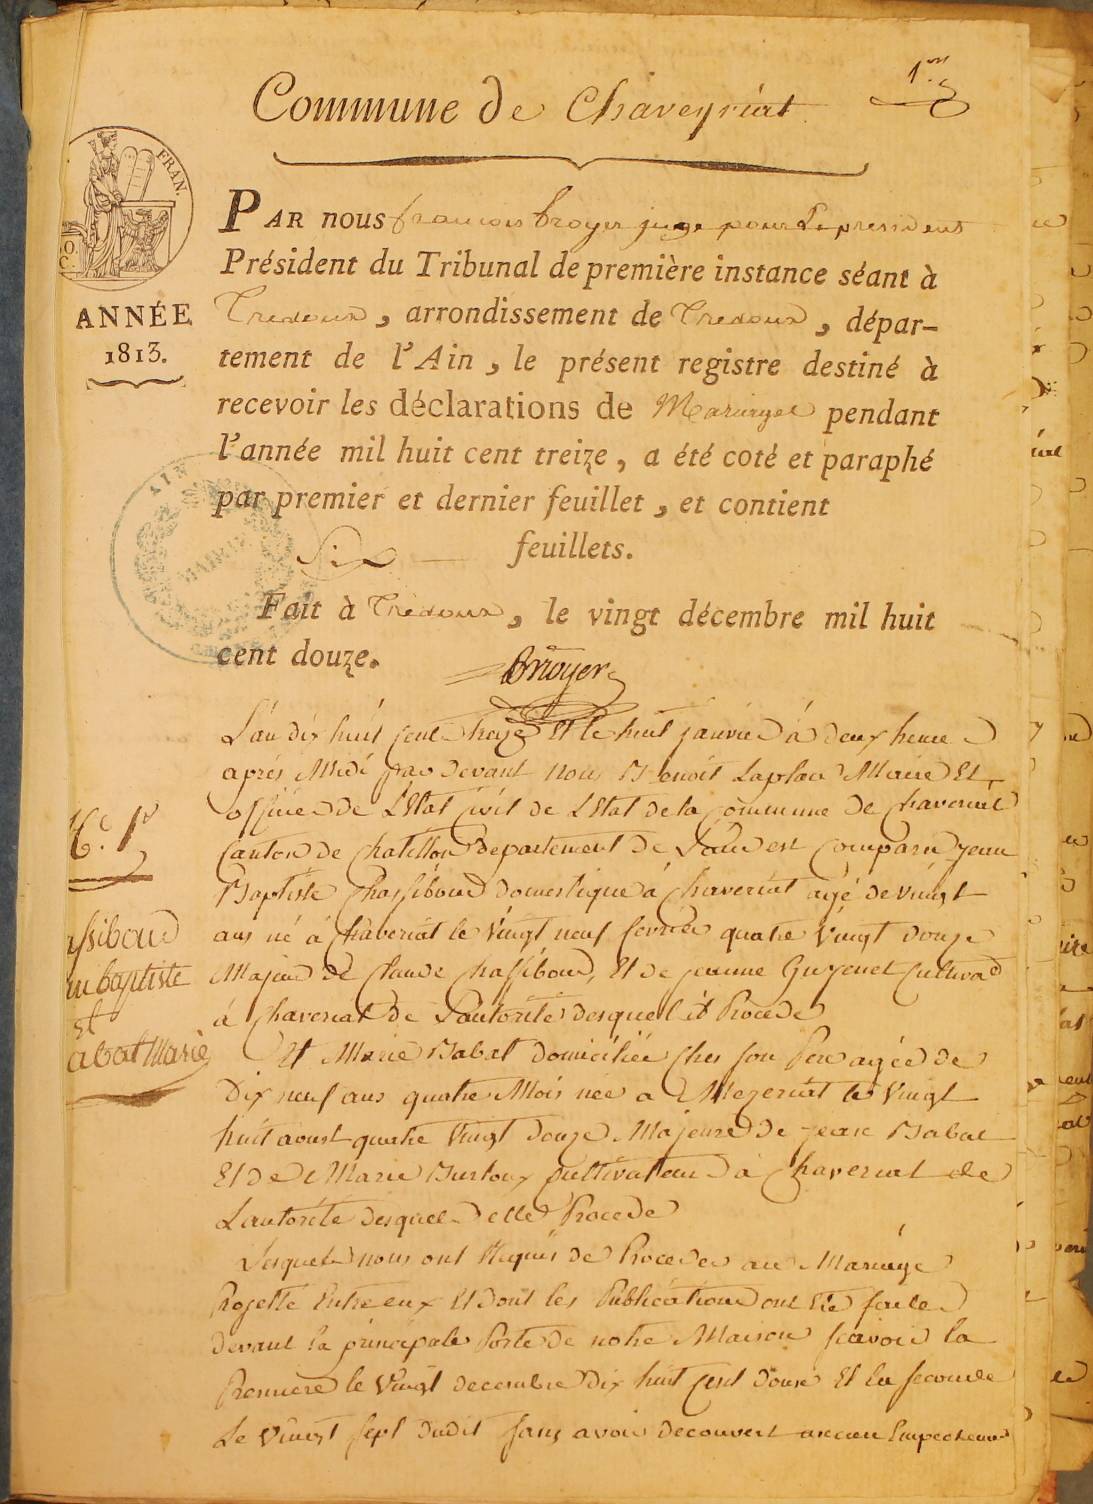 1er
Commune de Chaveyriat
FRAN.
ANNÉE
1813.
PAR nous francois broyer juge pour Le president
Président du Tribunal de première instance séant à
Trevoux, arrondissement de Trevoux, dépar-
tement de l'Ain, le présent registre destiné à
recevoir les déclarations de Mariages pendant
l'année mil huit cent treize, a été coté et paraphé
par premier et dernier feuillet, et contient
Six feuillets.
Fait à Trevoux, le vingt décembre mil huit
cent douze.
Broyer
L'an dix huit cent treize Et le huit janvier à deux heure
aprés Midi par devant nous Benoit Laplace Maire Et
officier de L'Etat Civil de L'Etat de la Commune de Chaveriat
Canton de Chatillon departement de L'ain est comparu jean
Baptiste Chassiboud domestique à Chaveriat agé de vingt
ans né à Chaveriat le Vingt neuf fevrier quatre Vingt douze
Majeur de Claude Chassiboud, Et de jeanne Guyenet Cultivad
à Chaveriat de L'autorité desquel il Procede
Et Marie Babat domiciliée ches son Pere agée de
Dix neuf ans quatre Mois née a Mezeriat le Vingt
huit aoust quatre Vingt douze Majeure de jean Babat
Et de Marie Burtoux Cultivateur à Chaveriat de
L'autorité desquel elle Procede
Lesquel nous ont Requis de Proceder au Mariage
Projetté Entre eux Et dont les Publication ont Eté faite
devant la principale Porte de notre Maison scavoir la
Premiere le Vingt decembre dix huit Cent douse Et la seconde
Le Vingt sept dudit sans avoir decouvert aucun Empechem
No. 1er
ssiboud
an baptiste
Et
abat Marie